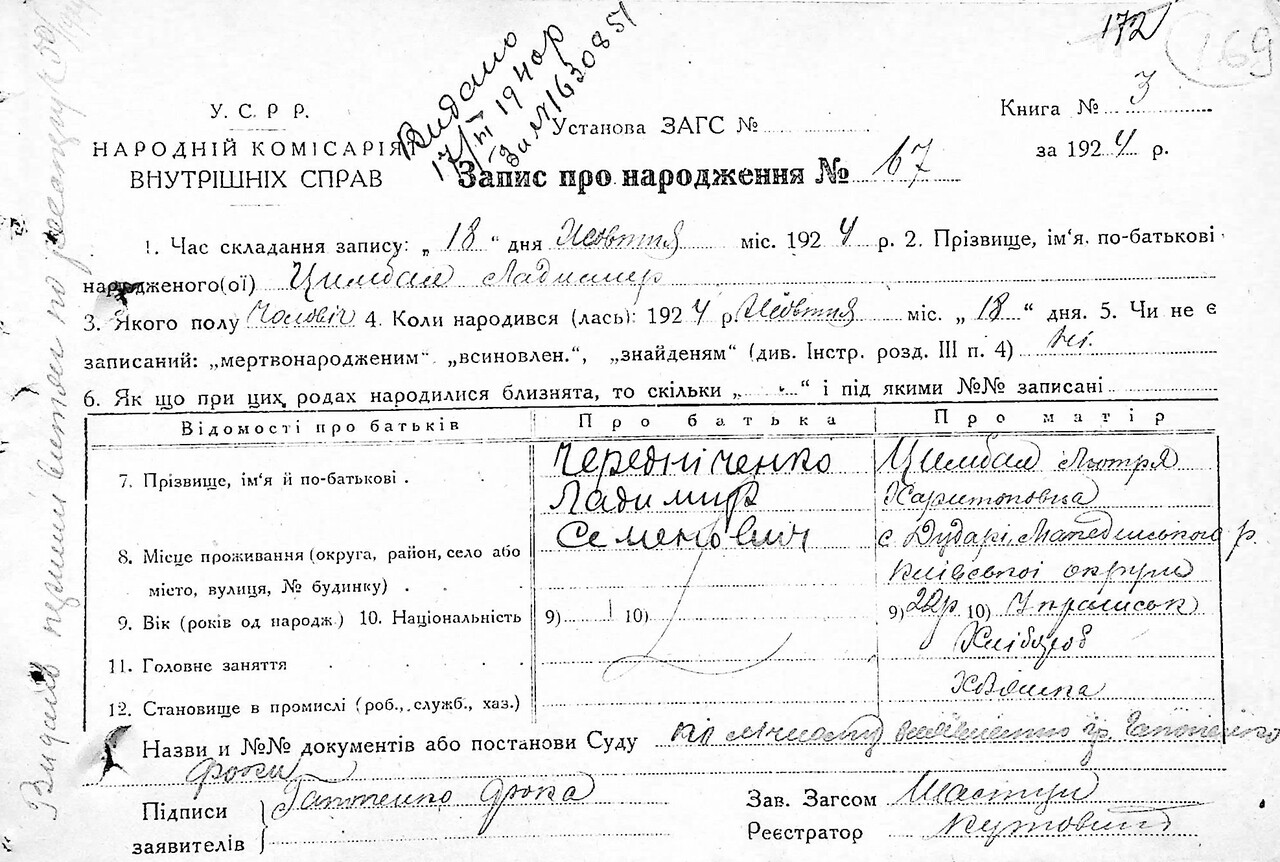 172
169
Видано
17/III 1940р
За № 1630851
У. С. Р Р.
НАРОДНІЙ КОМІСАРІЯТ
ВНУТРІШНІХ СПРАВ
Установа ЗАГС №
Книга № 3
за 1924 р.
Запис про народження № 67
1. Час складання запису: „ 18 “ дня Жовтня міс. 1924 р. 2. Прізвище, ім'я, по-батькові
народженого(ої) Цимбал Ладимир
3. Якого полу Чоловіч 4. Коли народився (лась): 1924 р. Жовтня міс. „ 18 “ дня. 5. Чи не є
записаний: „мертвонародженим“, „всиновлен.“, „знайденям“ (див. Інстр. розд. III п. 4) ні.
6. Як що при цих родах народилися близнята, то скільки „ “ і під якими №№ записані
Відомості про батьків
Про батька
Про матір
7. Прізвище, ім'я й по-батькові .
Чередніченко
Ладимир
Семенович
Цимбал Мотря
Харитоновна
8. Місце проживання (округа, район, село або
місто, вулиця, № будинку) . .
с. Дударі,
р.
Київської округи
9. Вік (років од народж.) 10. Національність
9) 10)
9) 22р. 10) Українськ
11. Головне заняття . . . .
Хлібороб
12. Становище в промислі (роб., служб., хаз.)
Хазяйка
Назви и №№ документів або постанови Суду По гр. Гапоненко
Фоки
Підписи
заявителів
Гапоненко Фока
Зав. Загсом
Реєстратор
Видано перший витяг по